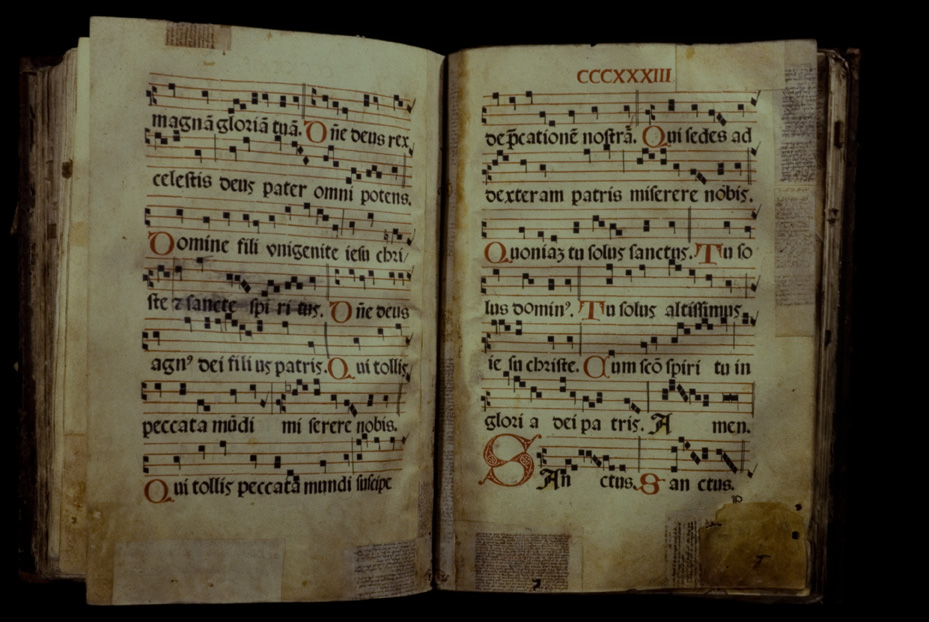 magnā gloriā tuā. Dñe deus rex
celestis deus pater omni potens.
Domine fili vnigenite iesu chri/
ste ⁊ sancte spi ri tus. Dñe deus
agnꝰ dei fili us patris. Qui tollis
peccata mūdi mi serere nobis.
Qui tollis peccata mundi suscipe
CCCXXXIII
dep̄cationē nostrā. Qui sedes ad
dexteram patris miserere nobis.
Quoniaʒ tu solus sanctus. Tu so
lus dominꝰ. Tu solus altissimus
ie su christe. Cum scō spiri tu in
glori a dei pa tris. A men.
SAn ctus. San ctus.